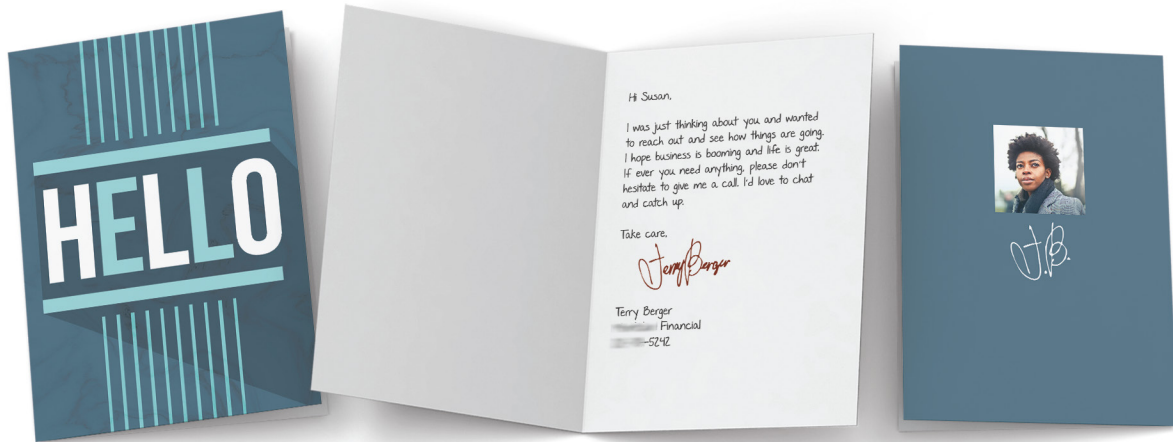 HELLO
Hi Susan,
I was just thinking about you and wanted
to reach out and see how things are going.
I hope business is booming and life is great.
If ever you need anything, please don't
hesitate to give me a call. I'd love to chat
and catch up.
Take care,
Terry Berger
Terry Berger
Financial
-5242
J.B.